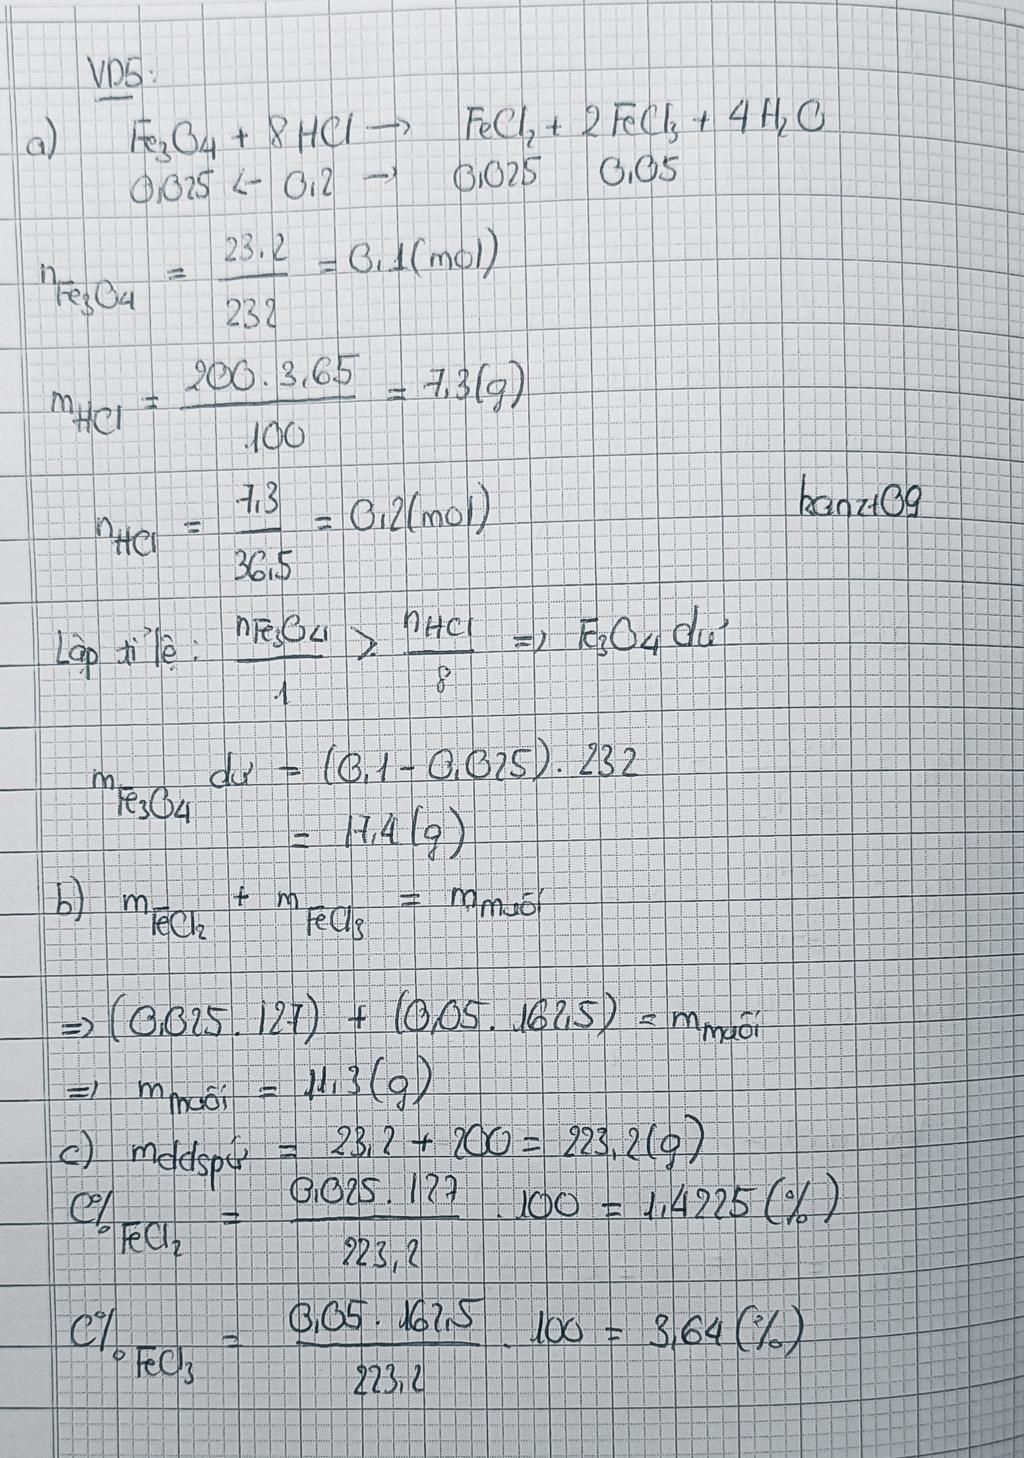 VD5:
a) Fe3O4 + 8HCl → FeCl2 + 2FeCl3 + 4H2O
0,025 ← 0,2 → 0,025 0,05
nFe3O4 = 23,2/232 = 0,1(mol)
mHCl = 200.3,65/100 = 7,3(g)
nHCl = 7,3/36,5 = 0,2(mol)
kanzt09
Lập tỉ lệ: nFe3O4/1 > nHCl/8 => Fe3O4 dư
mFe3O4 dư = (0,1 - 0,025).232
= 17,4(g)
b) mFeCl2 + mFeCl3 = mmuối
=> (0,025.127) + (0,05.162,5) = mmuối
=> mmuối = 11,3(g)
c) mddspứ = 23,2 + 200 = 223,2(g)
C%FeCl2 = 0,025.127/223,2 .100 = 1,4225(%)
C%FeCl3 = 0,05.162,5/223,2 .100 = 3,64(%)